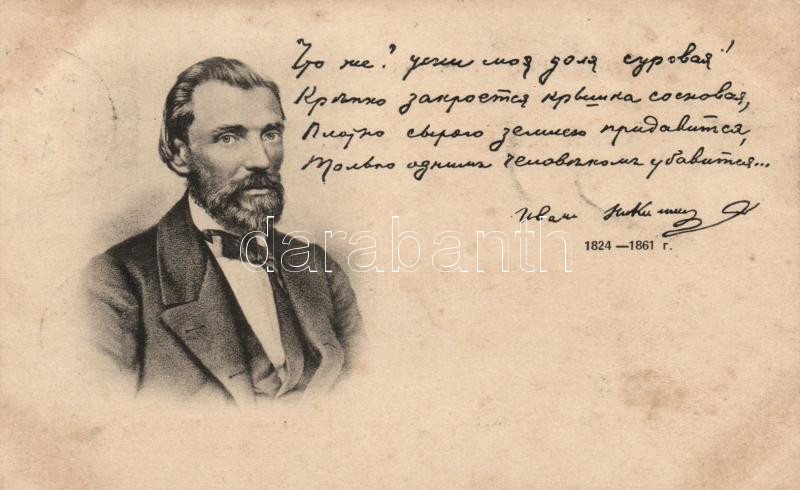 Что же? усни моя доля суровая!
Крѣпко закроется крышка сосновая,
Плотно сырою землею придавится,
Только однимъ человѣкомъ убавится...
Иванъ Никитинъ
1824 — 1861 г.
darabanth